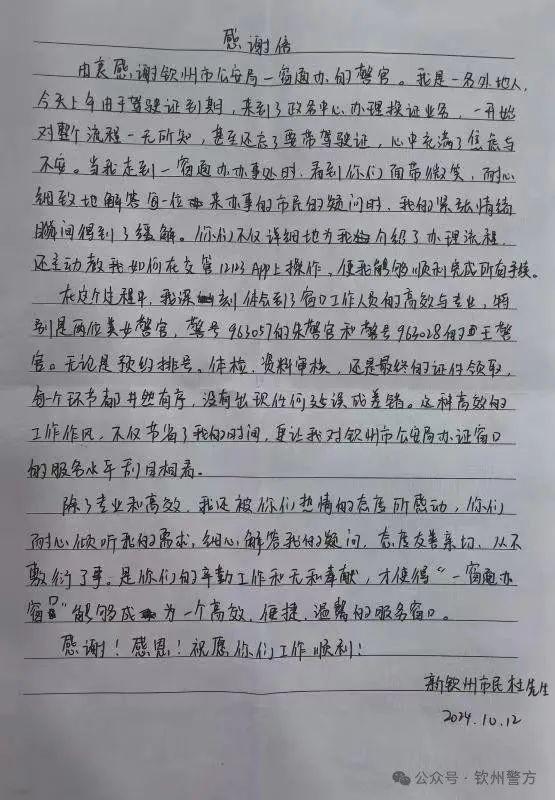 感谢信
由衷感谢钦州市公安局一窗通办的警官。我是一名外地人,
今天上午由于驾驶证到期,来到了政务中心办理换证业务,一开始
对整个流程一无所知,甚至还忘了要带驾驶证,心中充满了焦虑与
不安。当我走到一窗通办办事处时,看到你们面带微笑,耐心
细致地解答每一位来办事的市民的疑问时,我的紧张情绪
瞬间得到了缓解。你们不仅详细地为我介绍了办理流程,
还主动教我如何在交管12123App上操作,使我能够顺利完成所有手续。
在这个过程中,我深刻体会到了窗口工作人员的高效与专业,特
别是两位美女警官,警号963057的朱警官和警号963028的王警
官。无论是预约排号、体检、资料审核,还是最终的证件领取,
每个环节都井然有序,没有出现任何延误或差错。这种高效的
工作作风,不仅节省了我的时间,更让我对钦州市公安局办证窗口
的服务水平刮目相看。
除了专业和高效,我还被你们热情的态度所感动,你们
耐心倾听我的需求,细心解答我的疑问,态度友善亲切,从不
敷衍了事。是你们的辛勤工作和无私奉献,才使得“一窗通办
窗口”能够成为一个高效、便捷、温馨的服务窗口。
感谢!感恩!祝愿你们工作顺利!
新钦州市民杜先生
2024.10.12
公众号·钦州警方